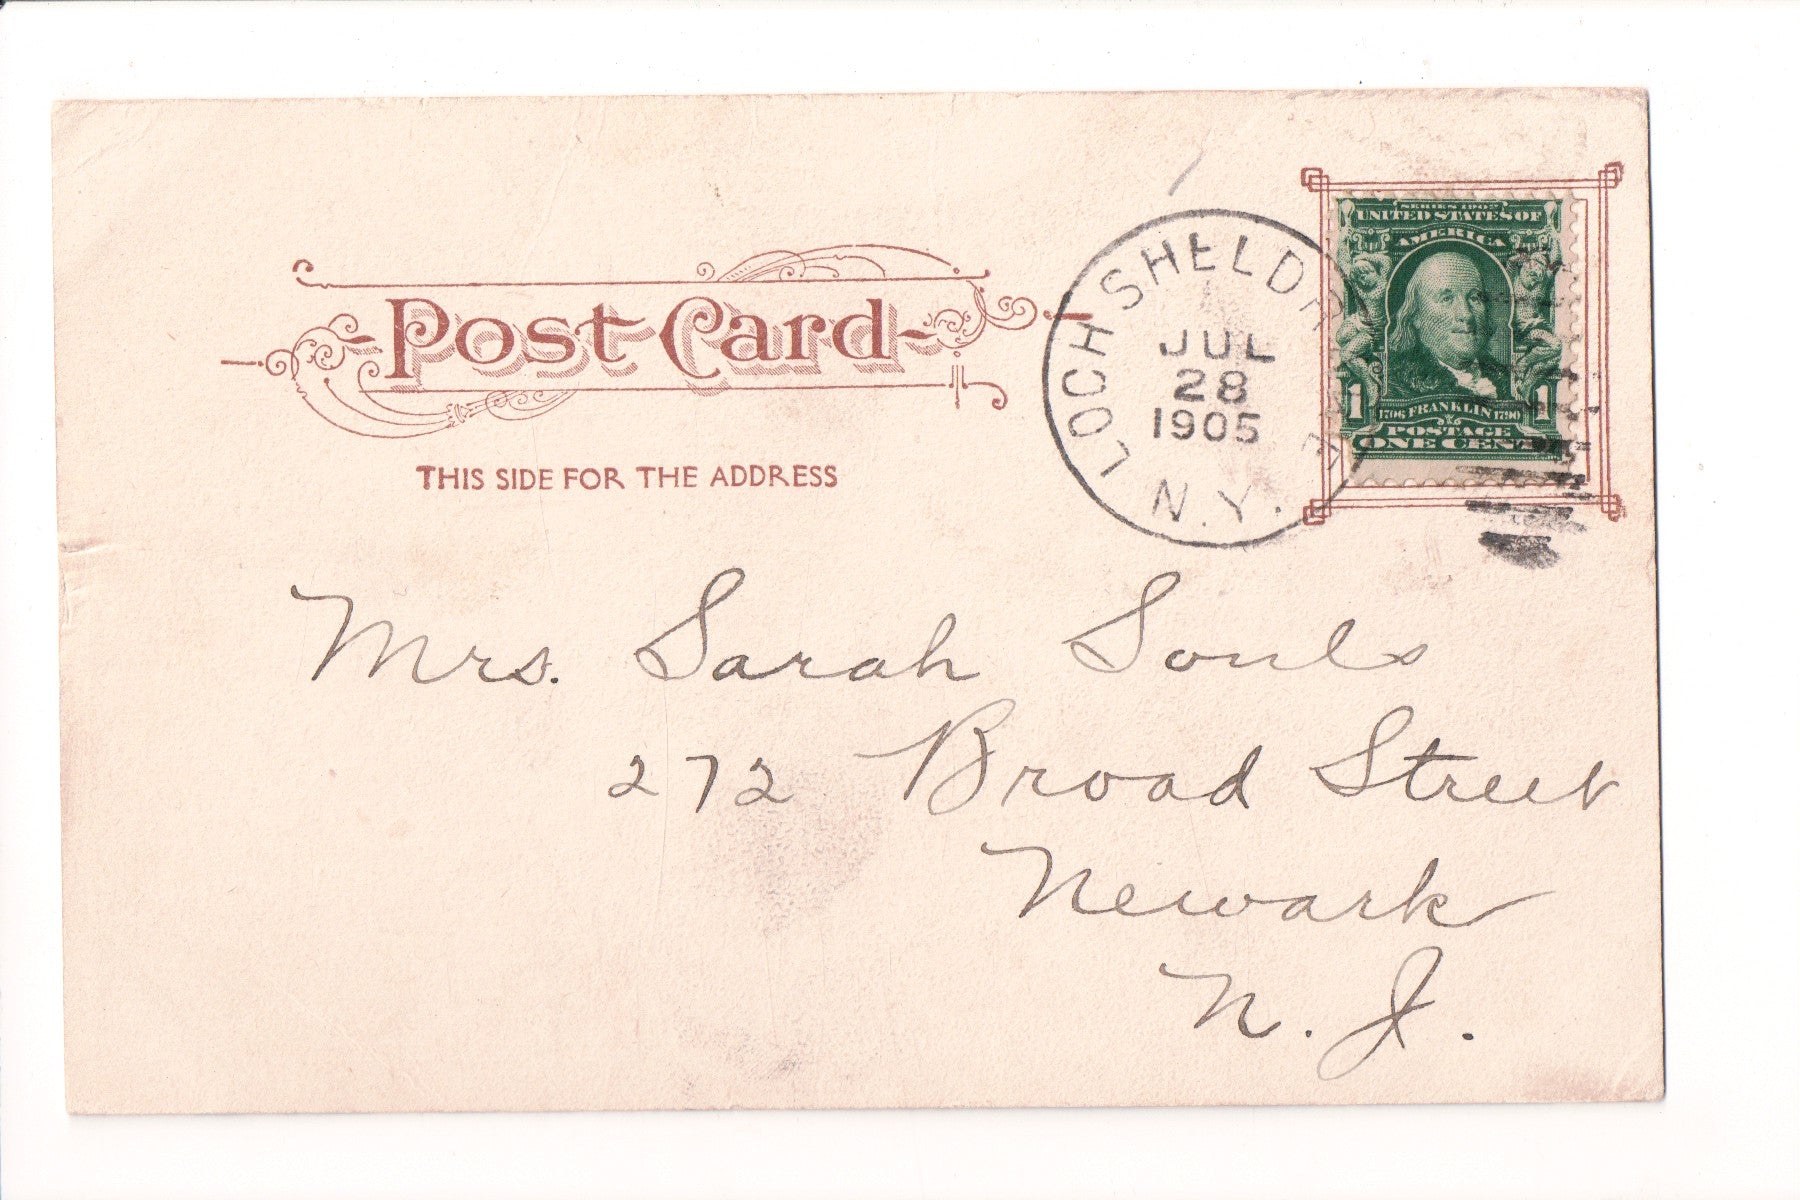 Post Card
THIS SIDE FOR THE ADDRESS
LOCH SHELDRAKE
N.Y.
JUL
28
1905
SERIES 1902
UNITED STATES OF
AMERICA
1 1706 FRANKLIN 1790 1
POSTAGE
ONE CENT
Mrs. Sarah Souls
272 Broad Street
Newark
N. J.